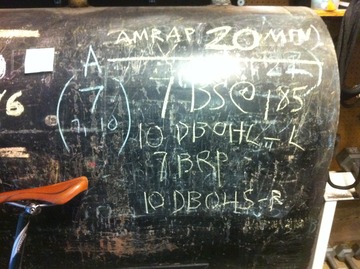 AMRAP 20 MIN
A
7
7 BS @ 185
10 DBOHL-L
7 BRP
10 DBOHS-R